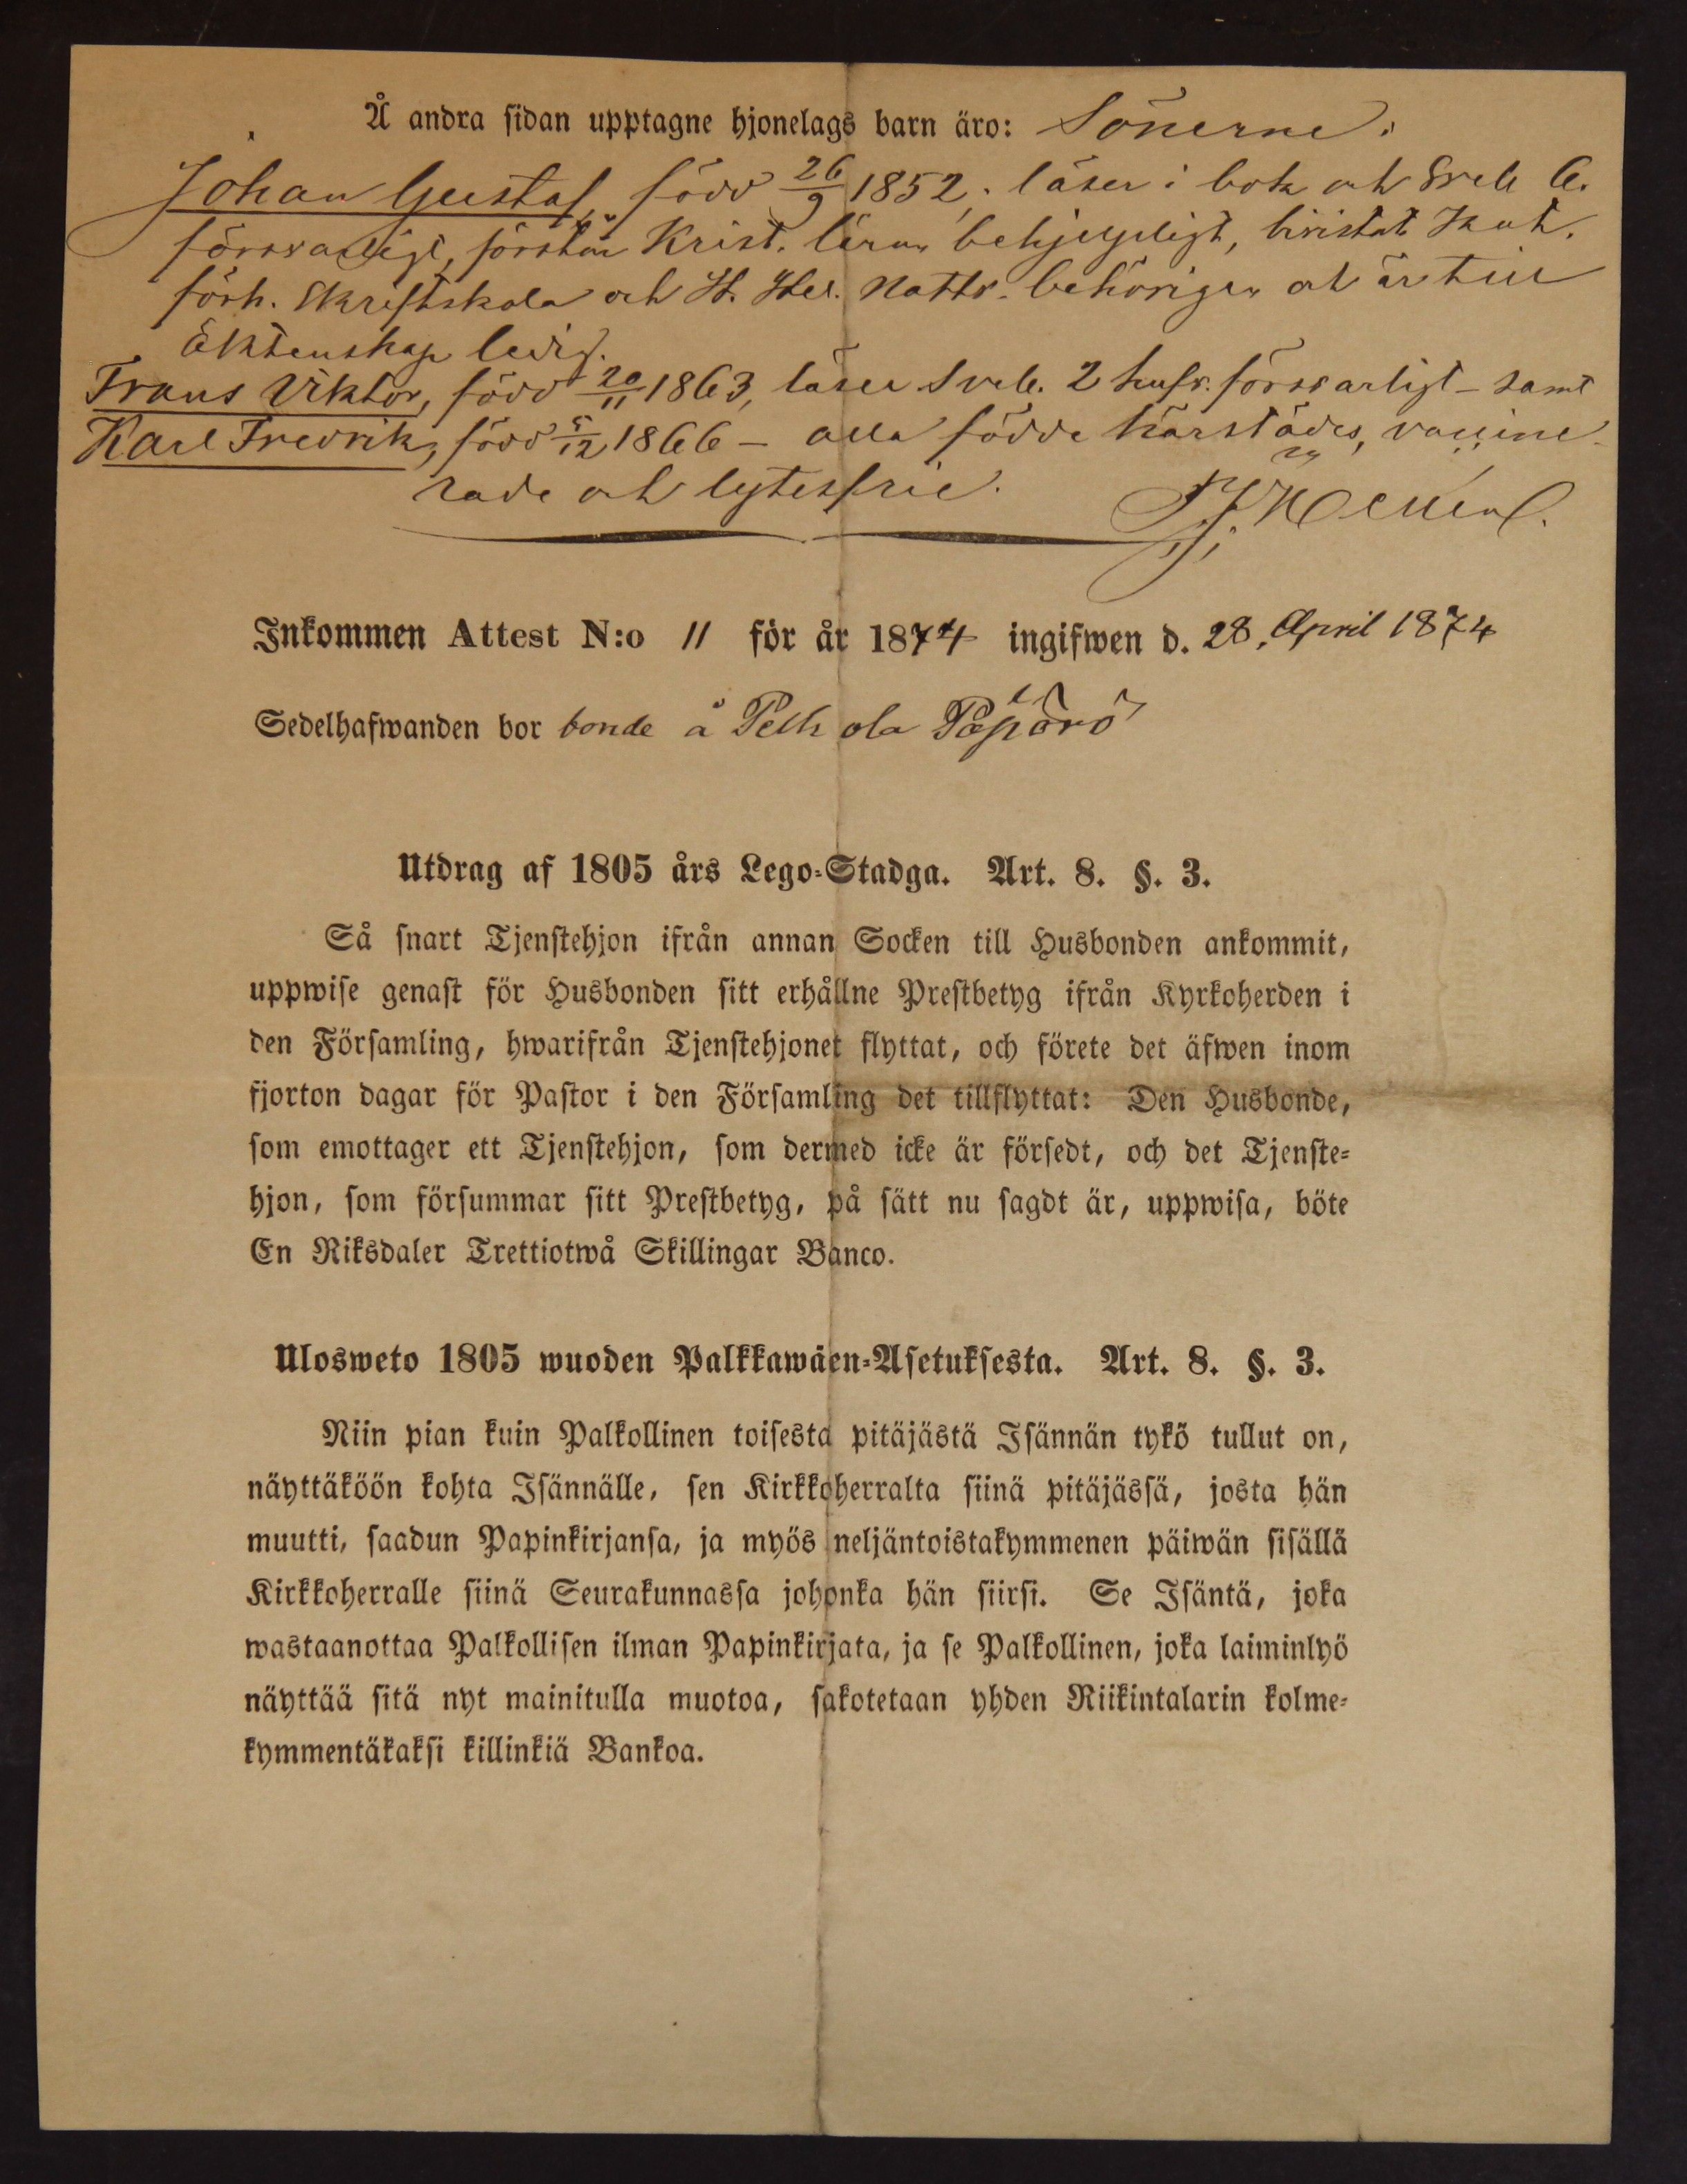 Å andra sidan upptagne hjonelags barn äro: Sönerne:
Johan Gustaf, född 26/9 1852, läser i bok och Sveb. C.
försvarligt, förstår Krist. läran behjelpligt, bivistat Kat.
förh. Skriftskola och H. H. Nattv. behörigen och är till
äktenskap ledig.
Frans Viktor, född 20/11 1863, läser Sveb. 2 hufv. försvarligt - samt
Karl Fredrik, född 5/12 1866 - alla födde härstädes, vaccine-
rade och lytesfrie.
Inkommen Attest N:o 11 för år 1874 ingifwen d. 28. April 1874
Sedelhafwanden bor bonde å Pelkola
Utdrag af 1805 års Lego-Stadga. Art. 8. §. 3.
Så snart Tjenstehjon ifrån annan Socken till Husbonden ankommit,
uppwise genast för Husbonden sitt erhållne Prestbetyg ifrån Kyrkoherden i
den Församling, hwarifrån Tjenstehjonet flyttat, och förete det äfwen inom
fjorton dagar för Pastor i den Församling det tillflyttat: Den Husbonde,
som emottager ett Tjenstehjon, som dermed icke är försedt, och det Tjenste-
hjon, som försummar sitt Prestbetyg, på sätt nu sagdt är, uppwisa, böte
En Riksdaler Trettiotwå Skillingar Banco.
Ulosweto 1805 wuoden Palkkawäen-Asetuksesta. Art. 8. §. 3.
Niin pian kuin Palkollinen toisesta pitäjästä Isännän tykö tullut on,
näyttäköön kohta Isännälle, sen Kirkkoherralta siinä pitäjässä, josta hän
muutti, saadun Papinkirjansa, ja myös neljäntoistakymmenen päiwän sisällä
Kirkkoherralle siinä Seurakunnassa johonka hän siirsi. Se Isäntä, joka
wastaanottaa Palkollisen ilman Papinkirjata, ja se Palkollinen, joka laiminlyö
näyttää sitä nyt mainitulla muotoa, sakotetaan yhden Riikintalarin kolme-
kymmentäkaksi killinkiä Bankoa.